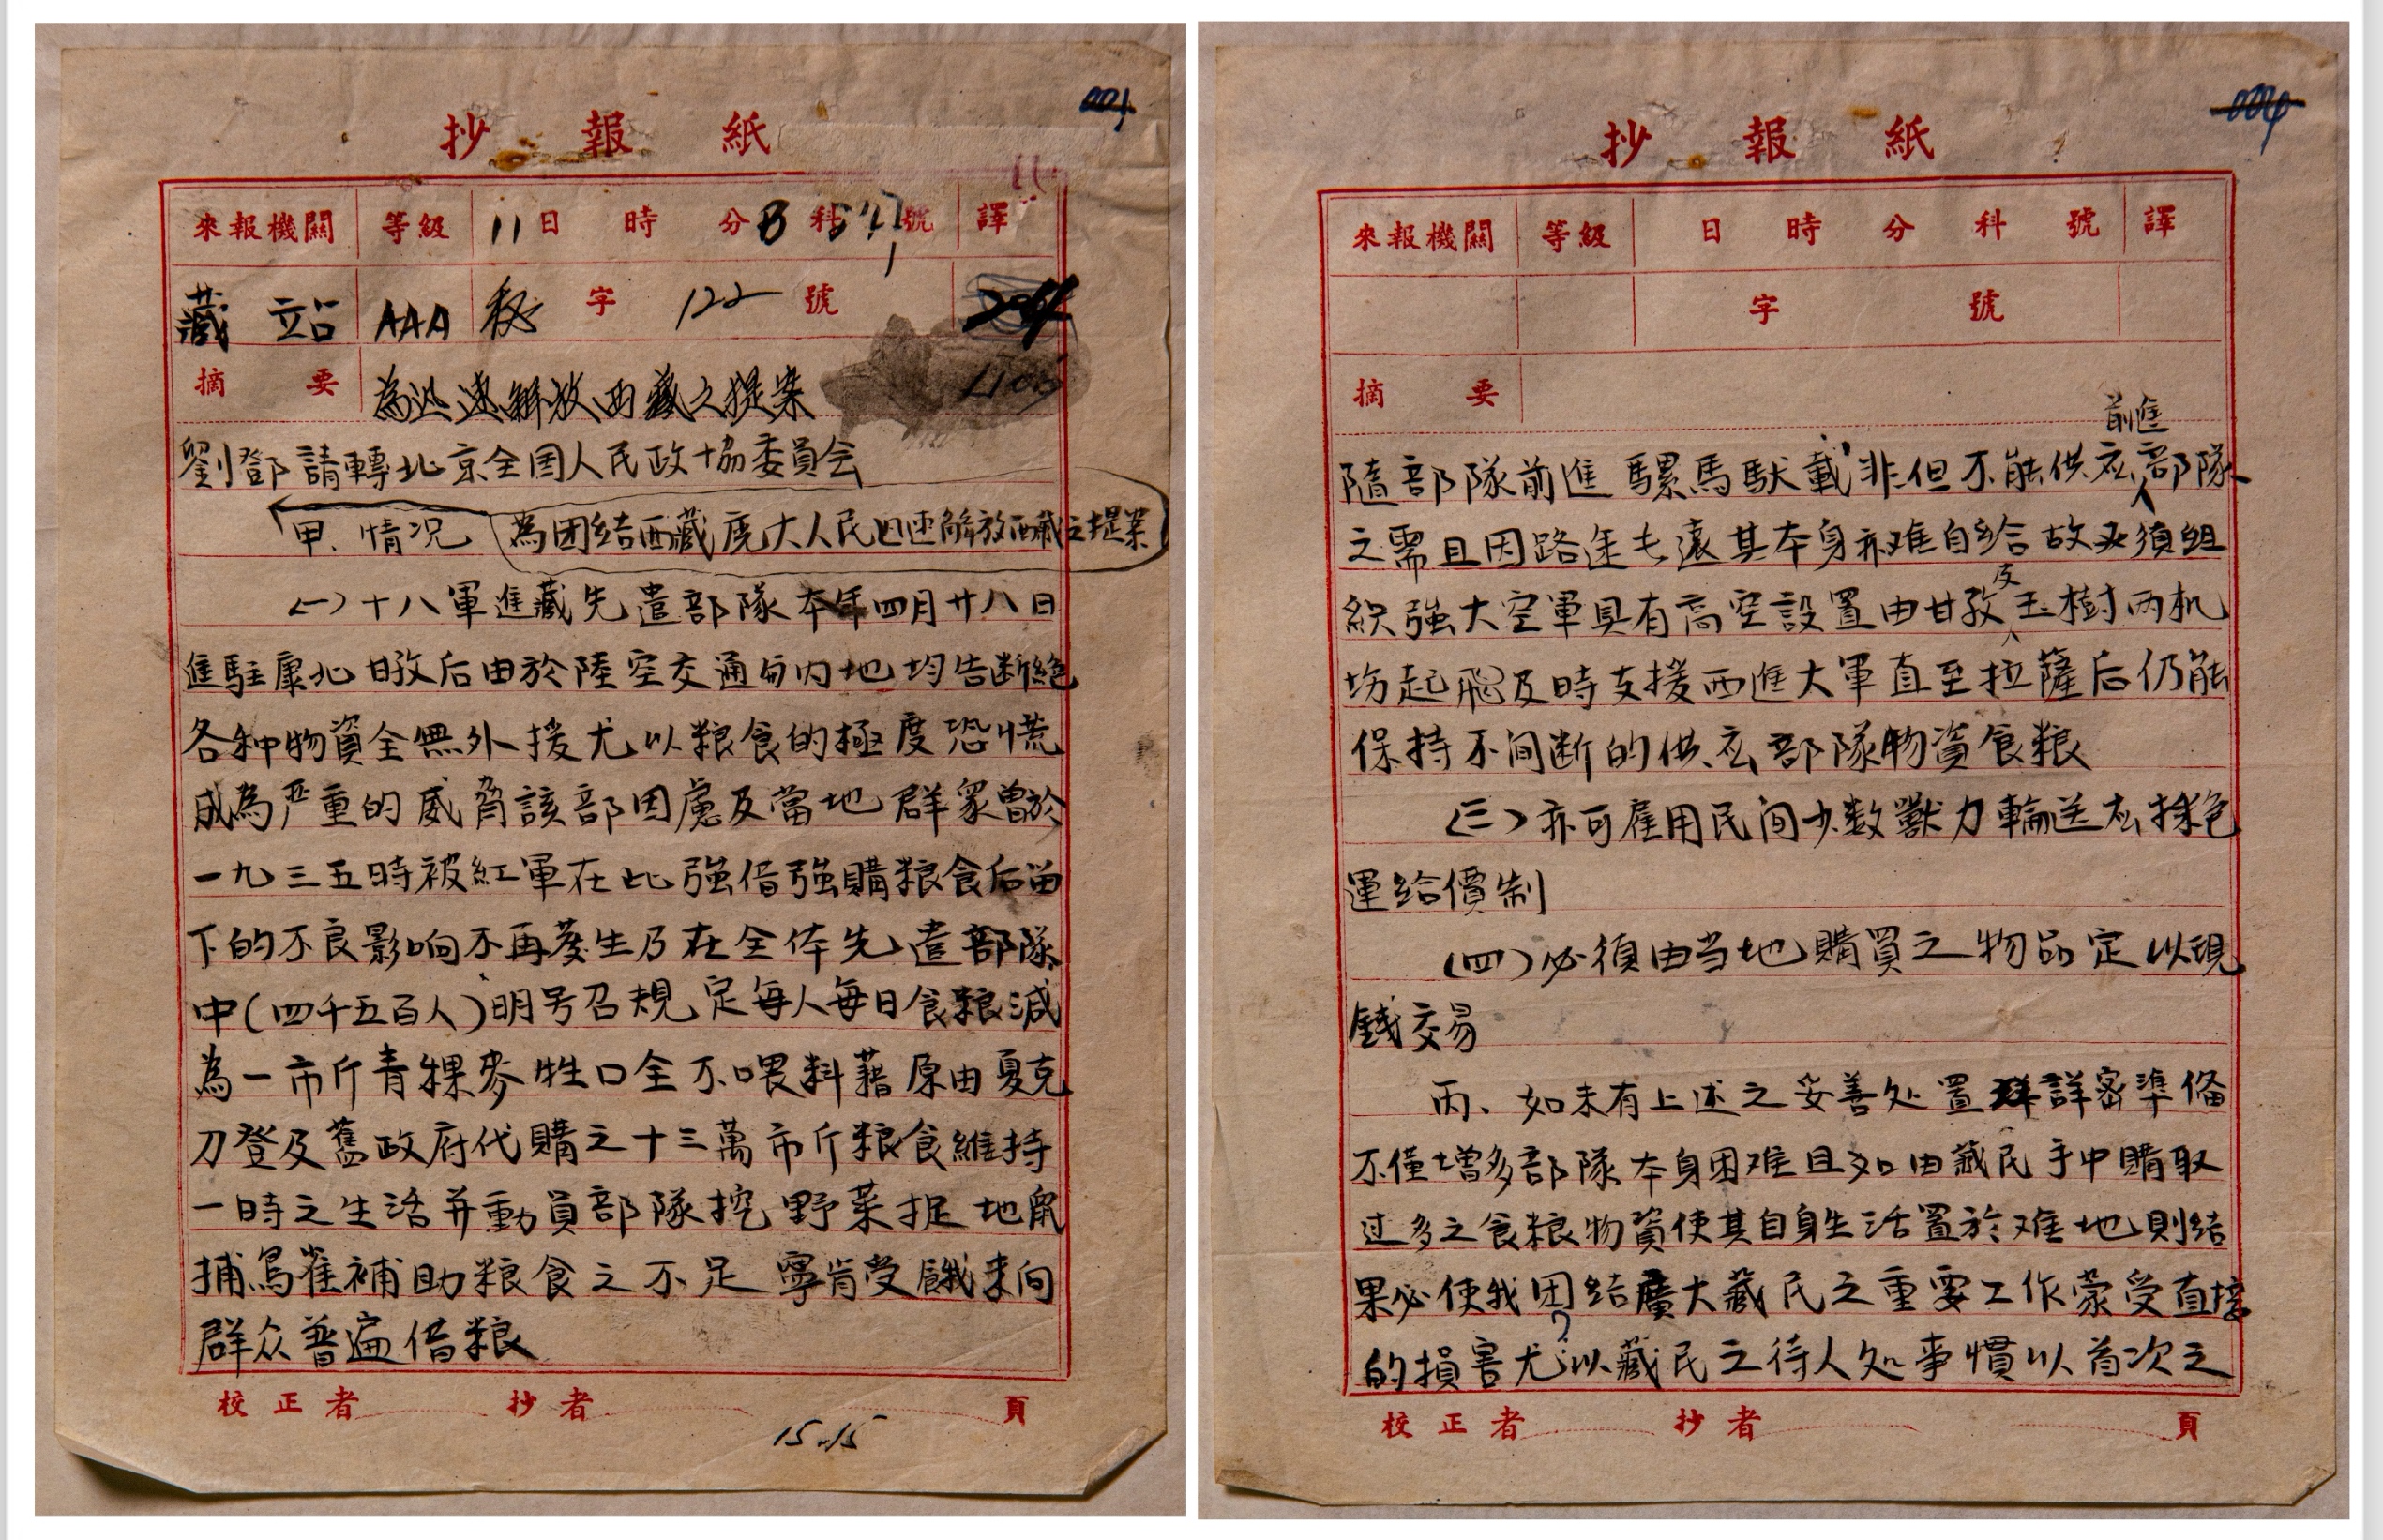 抄報紙
來報機關 等級 11日 時 分 科 號 譯
藏站 AAA 秘字 122 號
摘要 為迅速解放西藏之提案
劉鄧請轉北京全国人民政协委員会
甲、情况 為团结西藏廣大人民迅速解放西藏之提案
(一)十八軍進藏先遣部隊本年四月廿八日
進駐康北甘孜后由於陸空交通与内地均告断絕
各种物資全無外援尤以粮食的極度恐慌
成為严重的威脅該部因慮及當地群眾曾於
一九三五時被紅軍在此強借強購粮食后留
下的不良影响不再發生乃在全体先遣部隊
中(四千五百人)明号召規定每人每日食粮減
為一市斤青稞麥牲口全不喂料藉原由夏克
刀登及舊政府代購之十三萬市斤粮食維持
一時之生活并動員部隊挖野菜捉地鼠
捕鳥雀補助粮食之不足寧肯受餓未向
群众普遍借粮
校正者 抄者 頁
15.15
抄報紙
來報機關 等級 日 時 分 科 號 譯
字 號
摘要
前進
隨部隊前進騾馬馱載非但不能供应部隊
之需且因路途乇遠其本身亦难自給故必須組
織強大空軍具有高空設置由甘孜及玉樹两机
坊起飛及時支援西進大軍直至拉薩后仍能
保持不间断的供应部隊物資食粮
(三)亦可雇用民间少数獸力輸送应採包
運給價制
(四)必須由当地購買之物品定以現
錢交易
丙、如未有上述之妥善处置詳密準俻
不僅增多部隊本身困难且如由藏民手中購取
过多之食粮物資使其自身生活置於难地則结
果必使我团结廣大藏民之重要工作蒙受直接
的損害尤以藏民之待人处事慣以首次之
校正者 抄者 頁